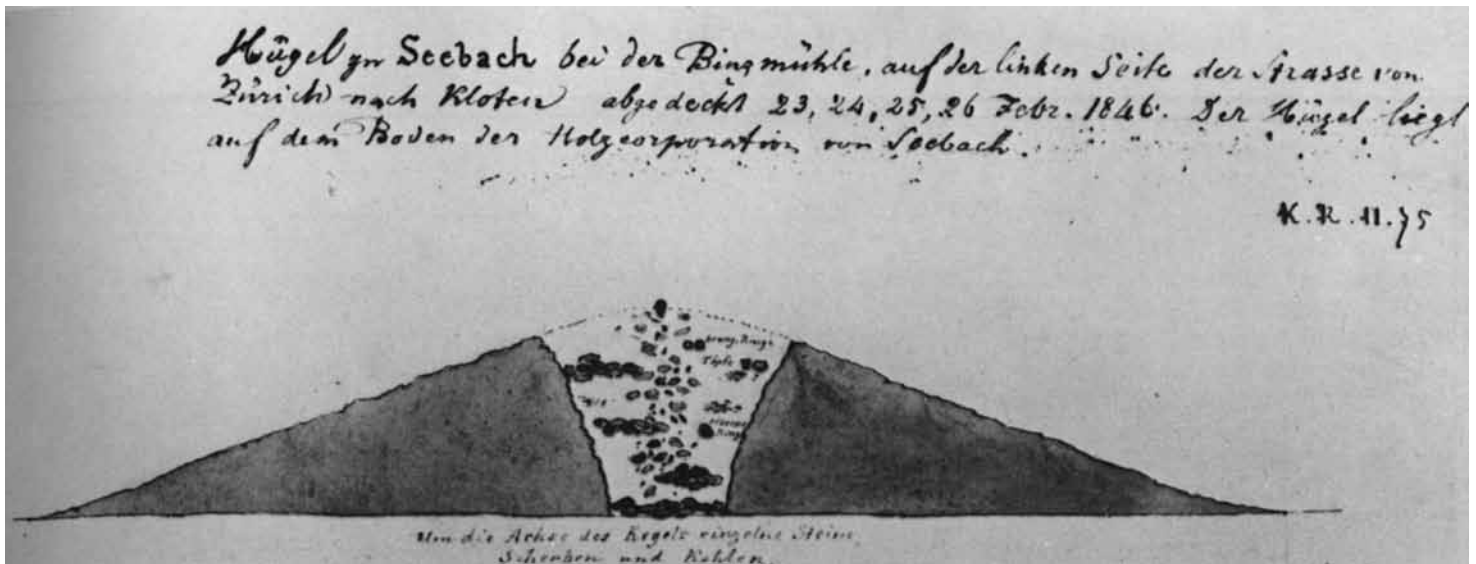 Hügel zu Seebach bei der Binzmühle, auf der linken Seite der Strasse von
Zürich nach Kloten abgedeckt 23, 24, 25, 26 Febr. 1846. Der Hügel liegt
auf dem Boden der Holzcorporation von Seebach.
K. R. 11. 75
Ringe
Töpfe
Ringe
Um die Achse des Kegels einzelne Steine,
Scherben und Kohlen.